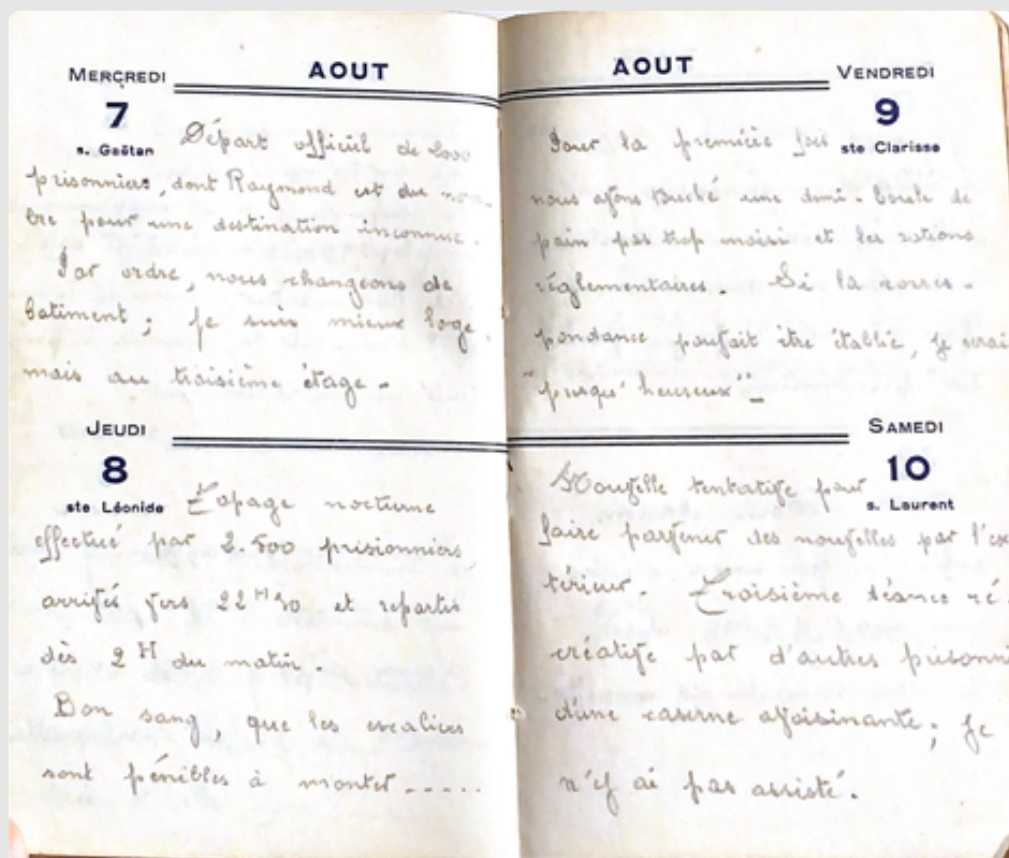 AOUT
MERCREDI
7
s. Gaëtan
Départ officiel de 2000
prisonniers, dont Raymond est du nom-
bre pour une destination inconnue.
Par ordre, nous changeons de
batiment ; je suis mieux logé
mais au troisième étage -
JEUDI
8
ste Léonide
Tapage nocturne
effectué par 2.500 prisionniers
arrivés vers 22H30 et repartis
dès 2H du matin.
Bon sang, que les escaliers
sont pénibles à monter.....
AOUT
VENDREDI
9
ste Clarisse
Pour la première fois
nous avons touché une demi-boule de
pain pas trop moisi et les rations
réglementaires. Si la corres-
pondance pouvait être établie, je serai
"presqu'heureux" -
SAMEDI
10
s. Laurent
Nouvelle tentative pour
faire parvenir des nouvelles par l'ex
térieur. Troisième séance ré-
créative par d'autres prisonni
d'une caserne avoisinante ; je
n'y ai pas assisté.